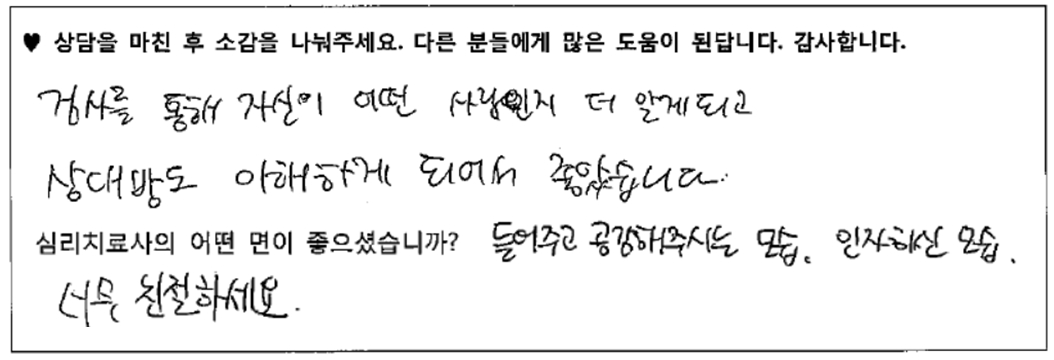 ♥ 상담을 마친 후 소감을 나눠주세요. 다른 분들에게 많은 도움이 된답니다. 감사합니다.
검사를 통해 자신이 어떤 사람인지 더 알게되고
상대방도 이해하게 되어서 좋았습니다.
심리치료사의 어떤 면이 좋으셨습니까? 들어주고 공감해주시는 모습. 인자하신 모습.
너무 친절하세요.